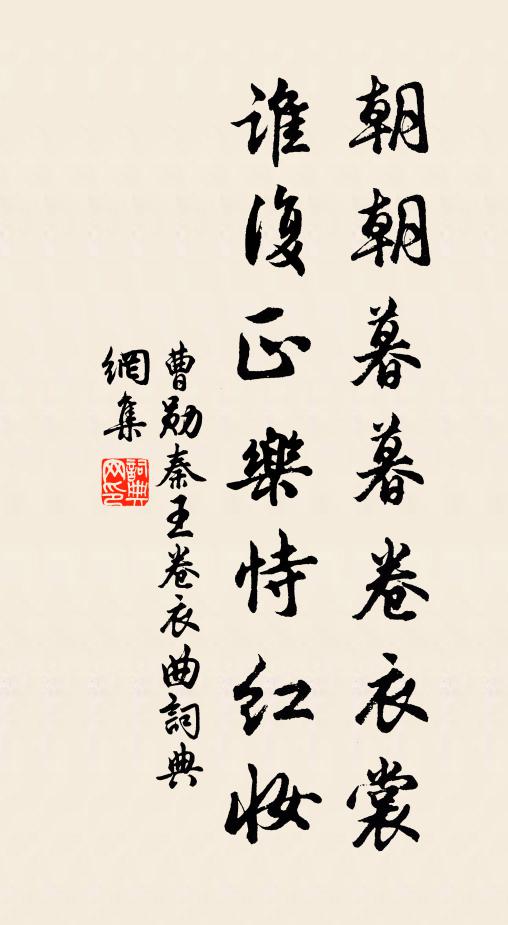 朝朝暮暮卷衣裳
誰復正樂恃紅妝
曹勛秦王卷衣曲詞典
網集
詞典網印